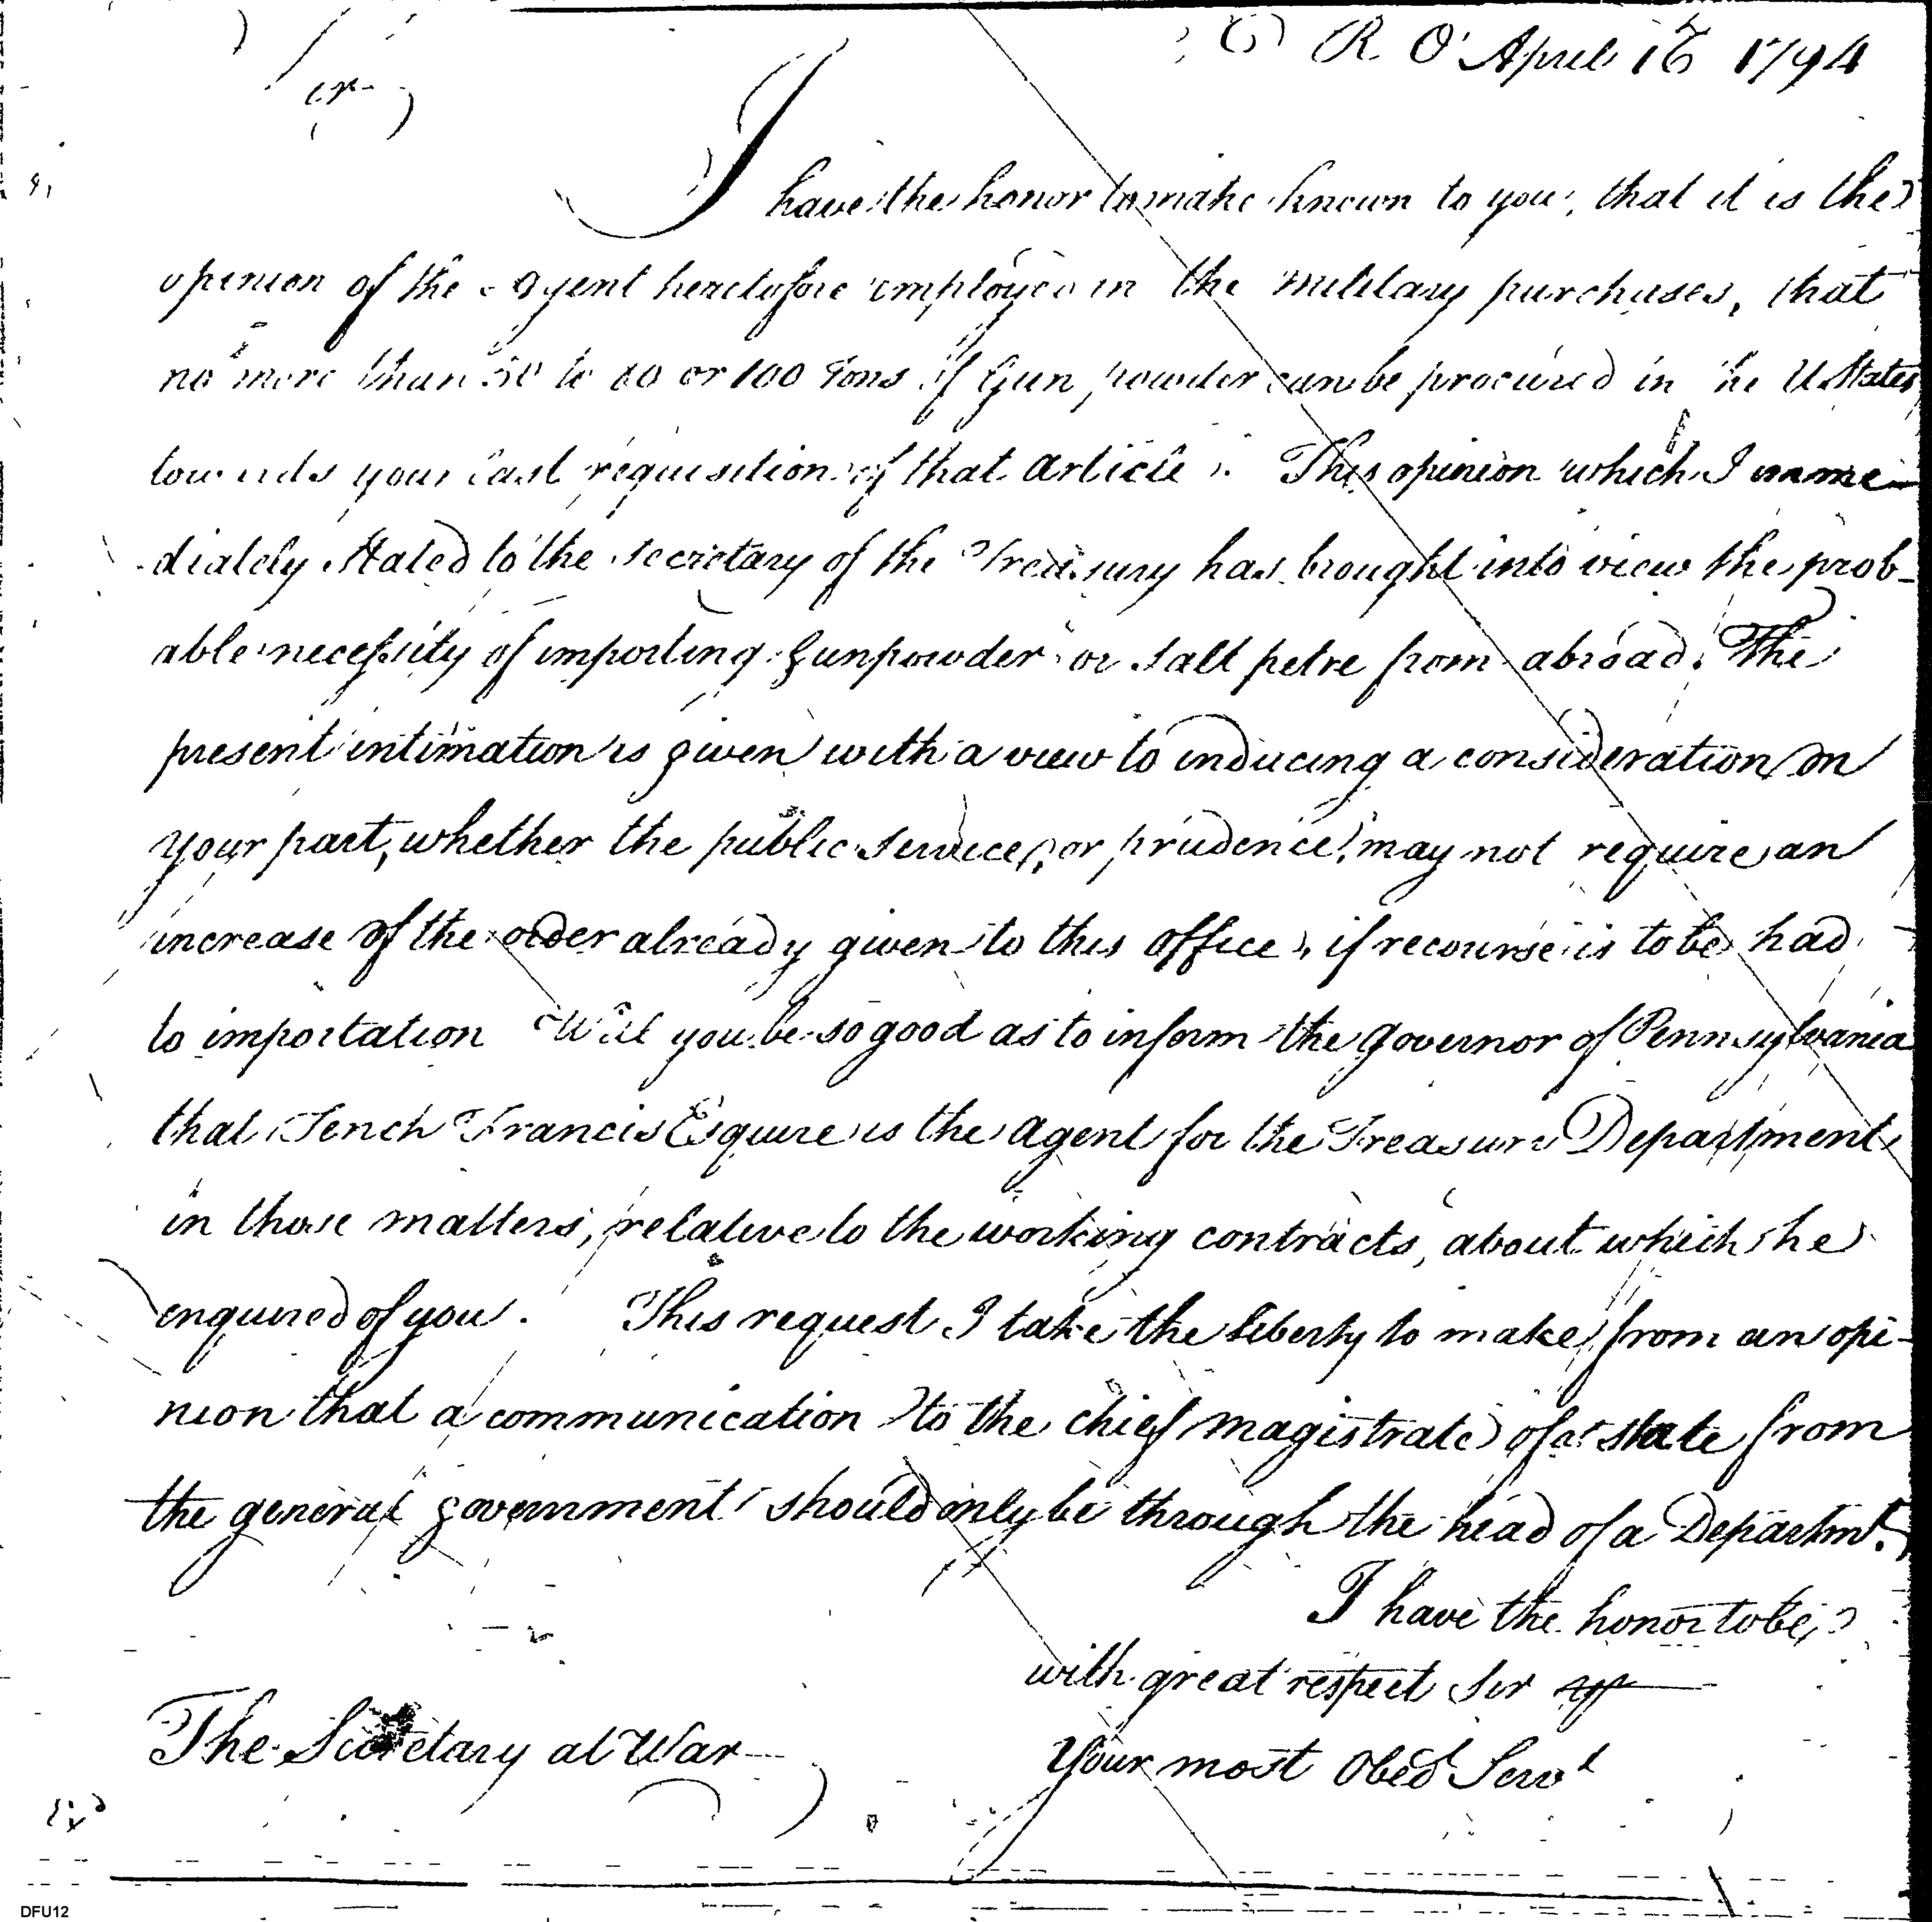 R. O. April 16 1794
I have the honor to make known to you, that it is the
opinion of the agent heretofore employed in the military purchases, that
no more than 50 to 80 or 100 Tons of Gun powder can be procured in the U States
towards your last requisition of that article. This opinion which I imme-
diately stated to the Secretary of the Treasury has brought into view the prob-
able necessity of importing gunpowder or salt petre from abroad. The
present intimation is given with a view to inducing a consideration on
your part, whether the public service, or prudence, may not require an
increase of the order already given to this office, if recourse is to be had
to importation Will you be so good as to inform the governor of Pennsylvania
that Tench Francis Esquire is the agent for the Treasury Department
in those matters, relative to the working contracts, about which he
enquired of you. This request I take the liberty to make from an opi-
nion that a communication to the chief magistrate of a state from
the general government should only be through the head of a Departmt.
I have the honor to be
with great respect Sir
The Secretary at War
Your most Obed Servt
DFU12